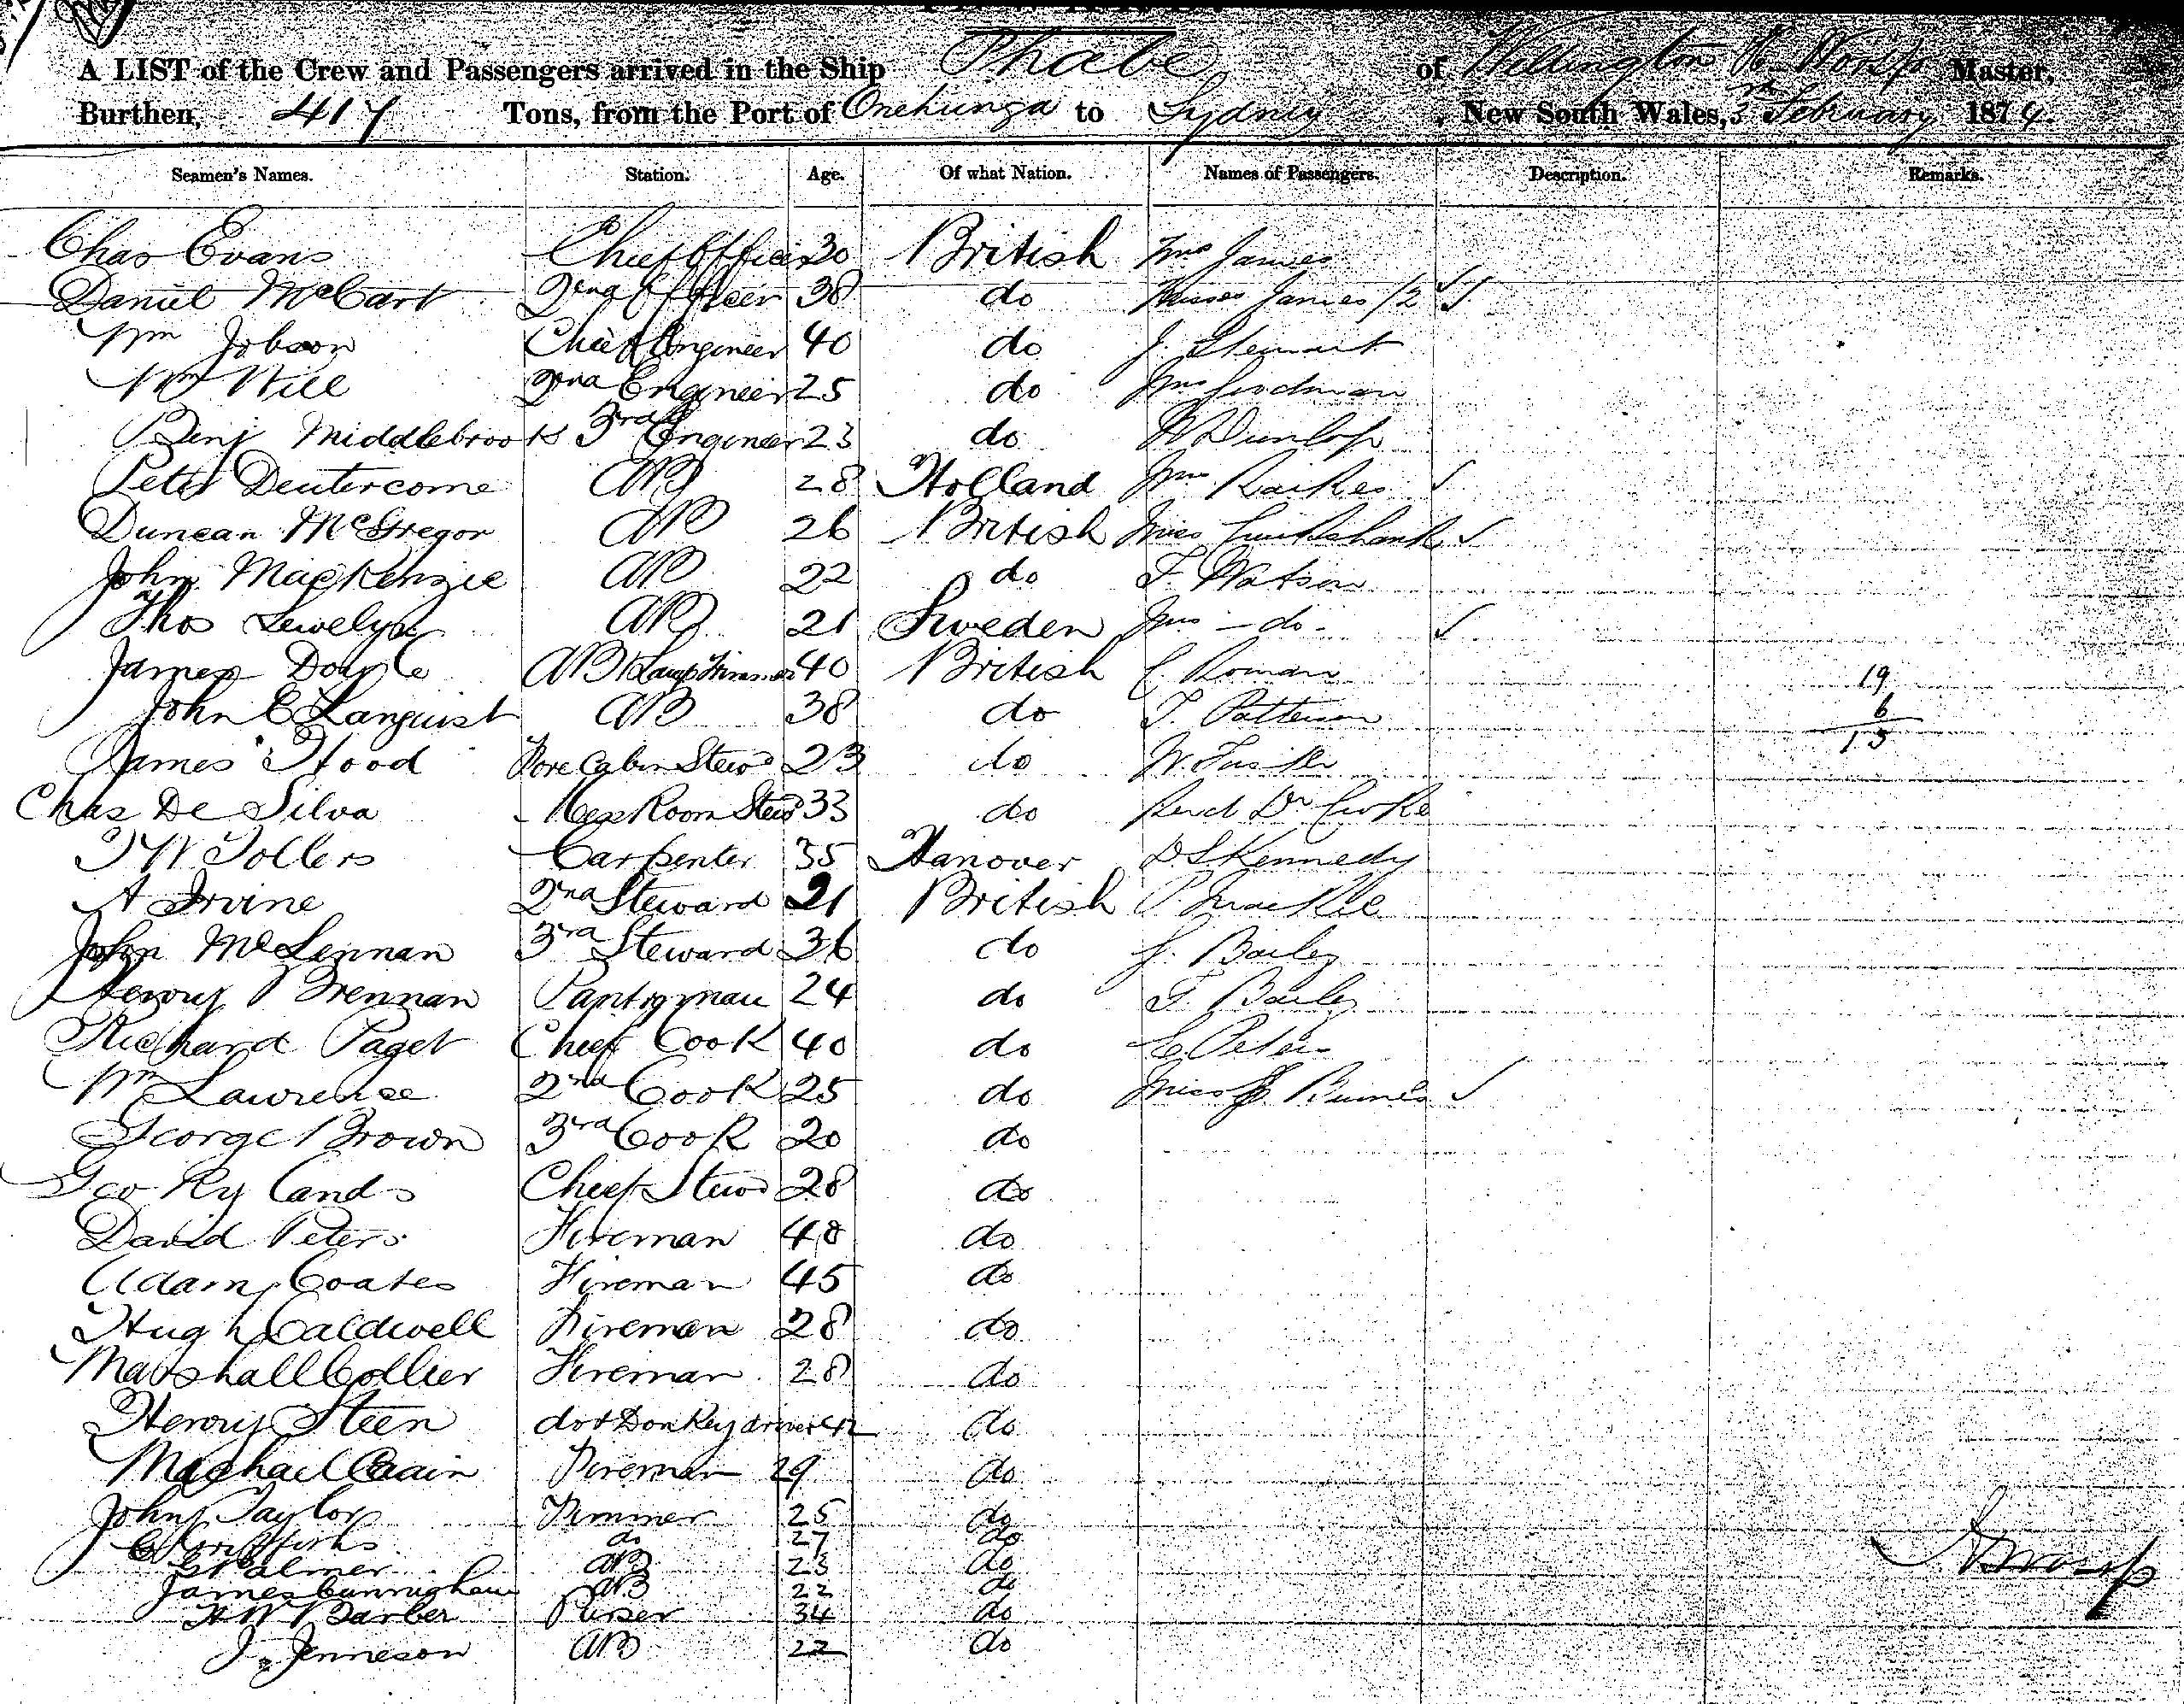 A LIST of the Crew and Passengers arrived in the Ship Phœbe of Wellington Worsp Master,
Burthen, 417 Tons, from the Port of Onehunga to Sydney, New South Wales, 3rd February 1874.
Seamen's Names. Station. Age. Of what Nation. Names of Passengers. Description. Remarks.
Chas Evans Chief Officer 30 British Mrs James
Daniel McCart 2nd Officer 38 do Misses James /2
Wm Jobson Chief Engineer 40 do J. Stewart
Wm Will 2nd Engineer 25 do Mrs
Benj Middlebrook 3rd Engineer 23 do W Dunlop
Peter Deutercome AB 28 Holland Mrs Raikes
Duncan McGregor AB 26 British Miss Cruikshank
John MacKenzie AB 22 do T. Watson
Thos Lewelyn AB 21 Sweden Mrs - do -
James Doyle AB & Lamp Trimmer 40 British C. Roman
19
John E Lanquist AB 38 do T. Patterson
6
13
James Hood Fore Cabin Stewd 23 do W.
Chas De Silva Mess Room Stewd 33 do Revd Dr
T W Tollers Carpenter 35 Hanover D S Kennedy
A Irvine 2nd Steward 21 British P. Mackie
John McLennan 3rd Steward 36 do J. Bailey
Henry Brennan Pantryman 24 do T. Bailey
Richard Paget Chief Cook 40 do E. Peters
Wm Lawrence 2nd Cook 25 do Miss
George Brown 3rd Cook 20 do
Geo Rylands Chief Stewd 28 do
David Peters Fireman 48 do
Adam Coates Fireman 45 do
Hugh Caldwell Fireman 28 do
Marshall Collier Fireman 28 do
Henry Steen do & Donkey driver 42 do
Machael Cain Fireman 29 do
John Taylor Trimmer 25 do
Griffiths do 27 do
G Palmer AB 23 do
James Cunningham AB 22 do
H W Barber Purser 34 do
J. Jenneson AB 22 do
Worsp